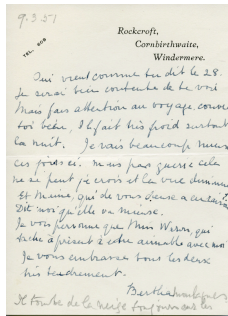 9.3.51
TEL. 608
Rockcroft,
Cornbirthwaite,
Windermere.
Oui vient comme tu dit le 28.
Je serai bien contente de te voir
Mais fais attention au voyage, couvre
toi bien, il fait très froid surtout
la nuit. Je vais beaucoup mieux
ces jours ci, mais pas guerie cela
ne se peut je crois et la vue diminue
Et Maime, qui de vous deux a
Dit moi qu'elle va mieux.
que Miss
à présent d'être aimable avec moi
Je vous embrasse tous les deux
très tendrement.
Bertha
Il tombe de la neige toujours